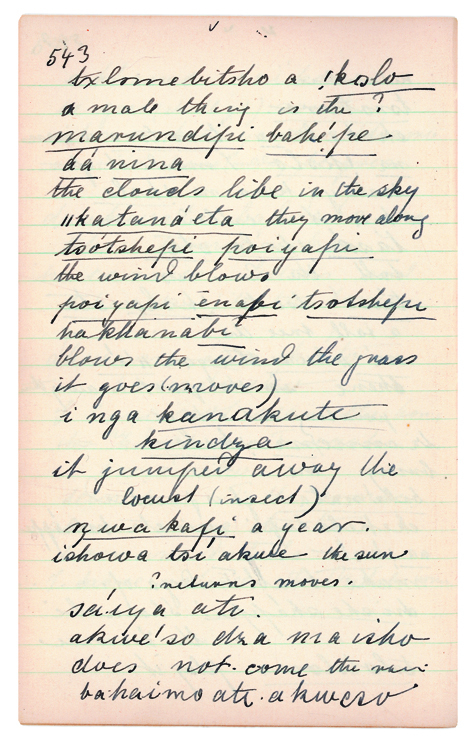 543
txlomebitsho a !koslo
a male thing is the ?
marundipi bahépe
dá nina
the clouds libe in the sky
//katanáeta they move along
tsótshepi poiyapi
the wind blows
poiyapi enabi tsotshepi
hakhanabi
blows the wind the grass
it goes (moves)
i nga kanakute
kindza
it jumped away the
locust (insect)
nzwa kapi a year.
ishowa tsi akute the sun
? returns moves.
sáiya ate.
akwé so dza maisho
does not come the rain
bahaimo ate. akweso